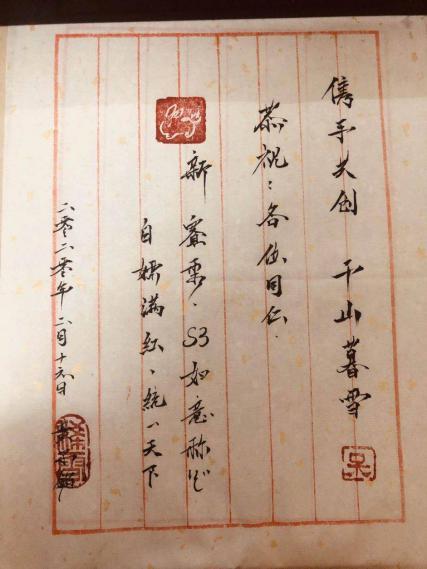 携手共创 千山暮雪
恭祝：各位同仁.
新赛季，S3如意称心
白嫖满红、统一天下
二零二零年 二月十六日